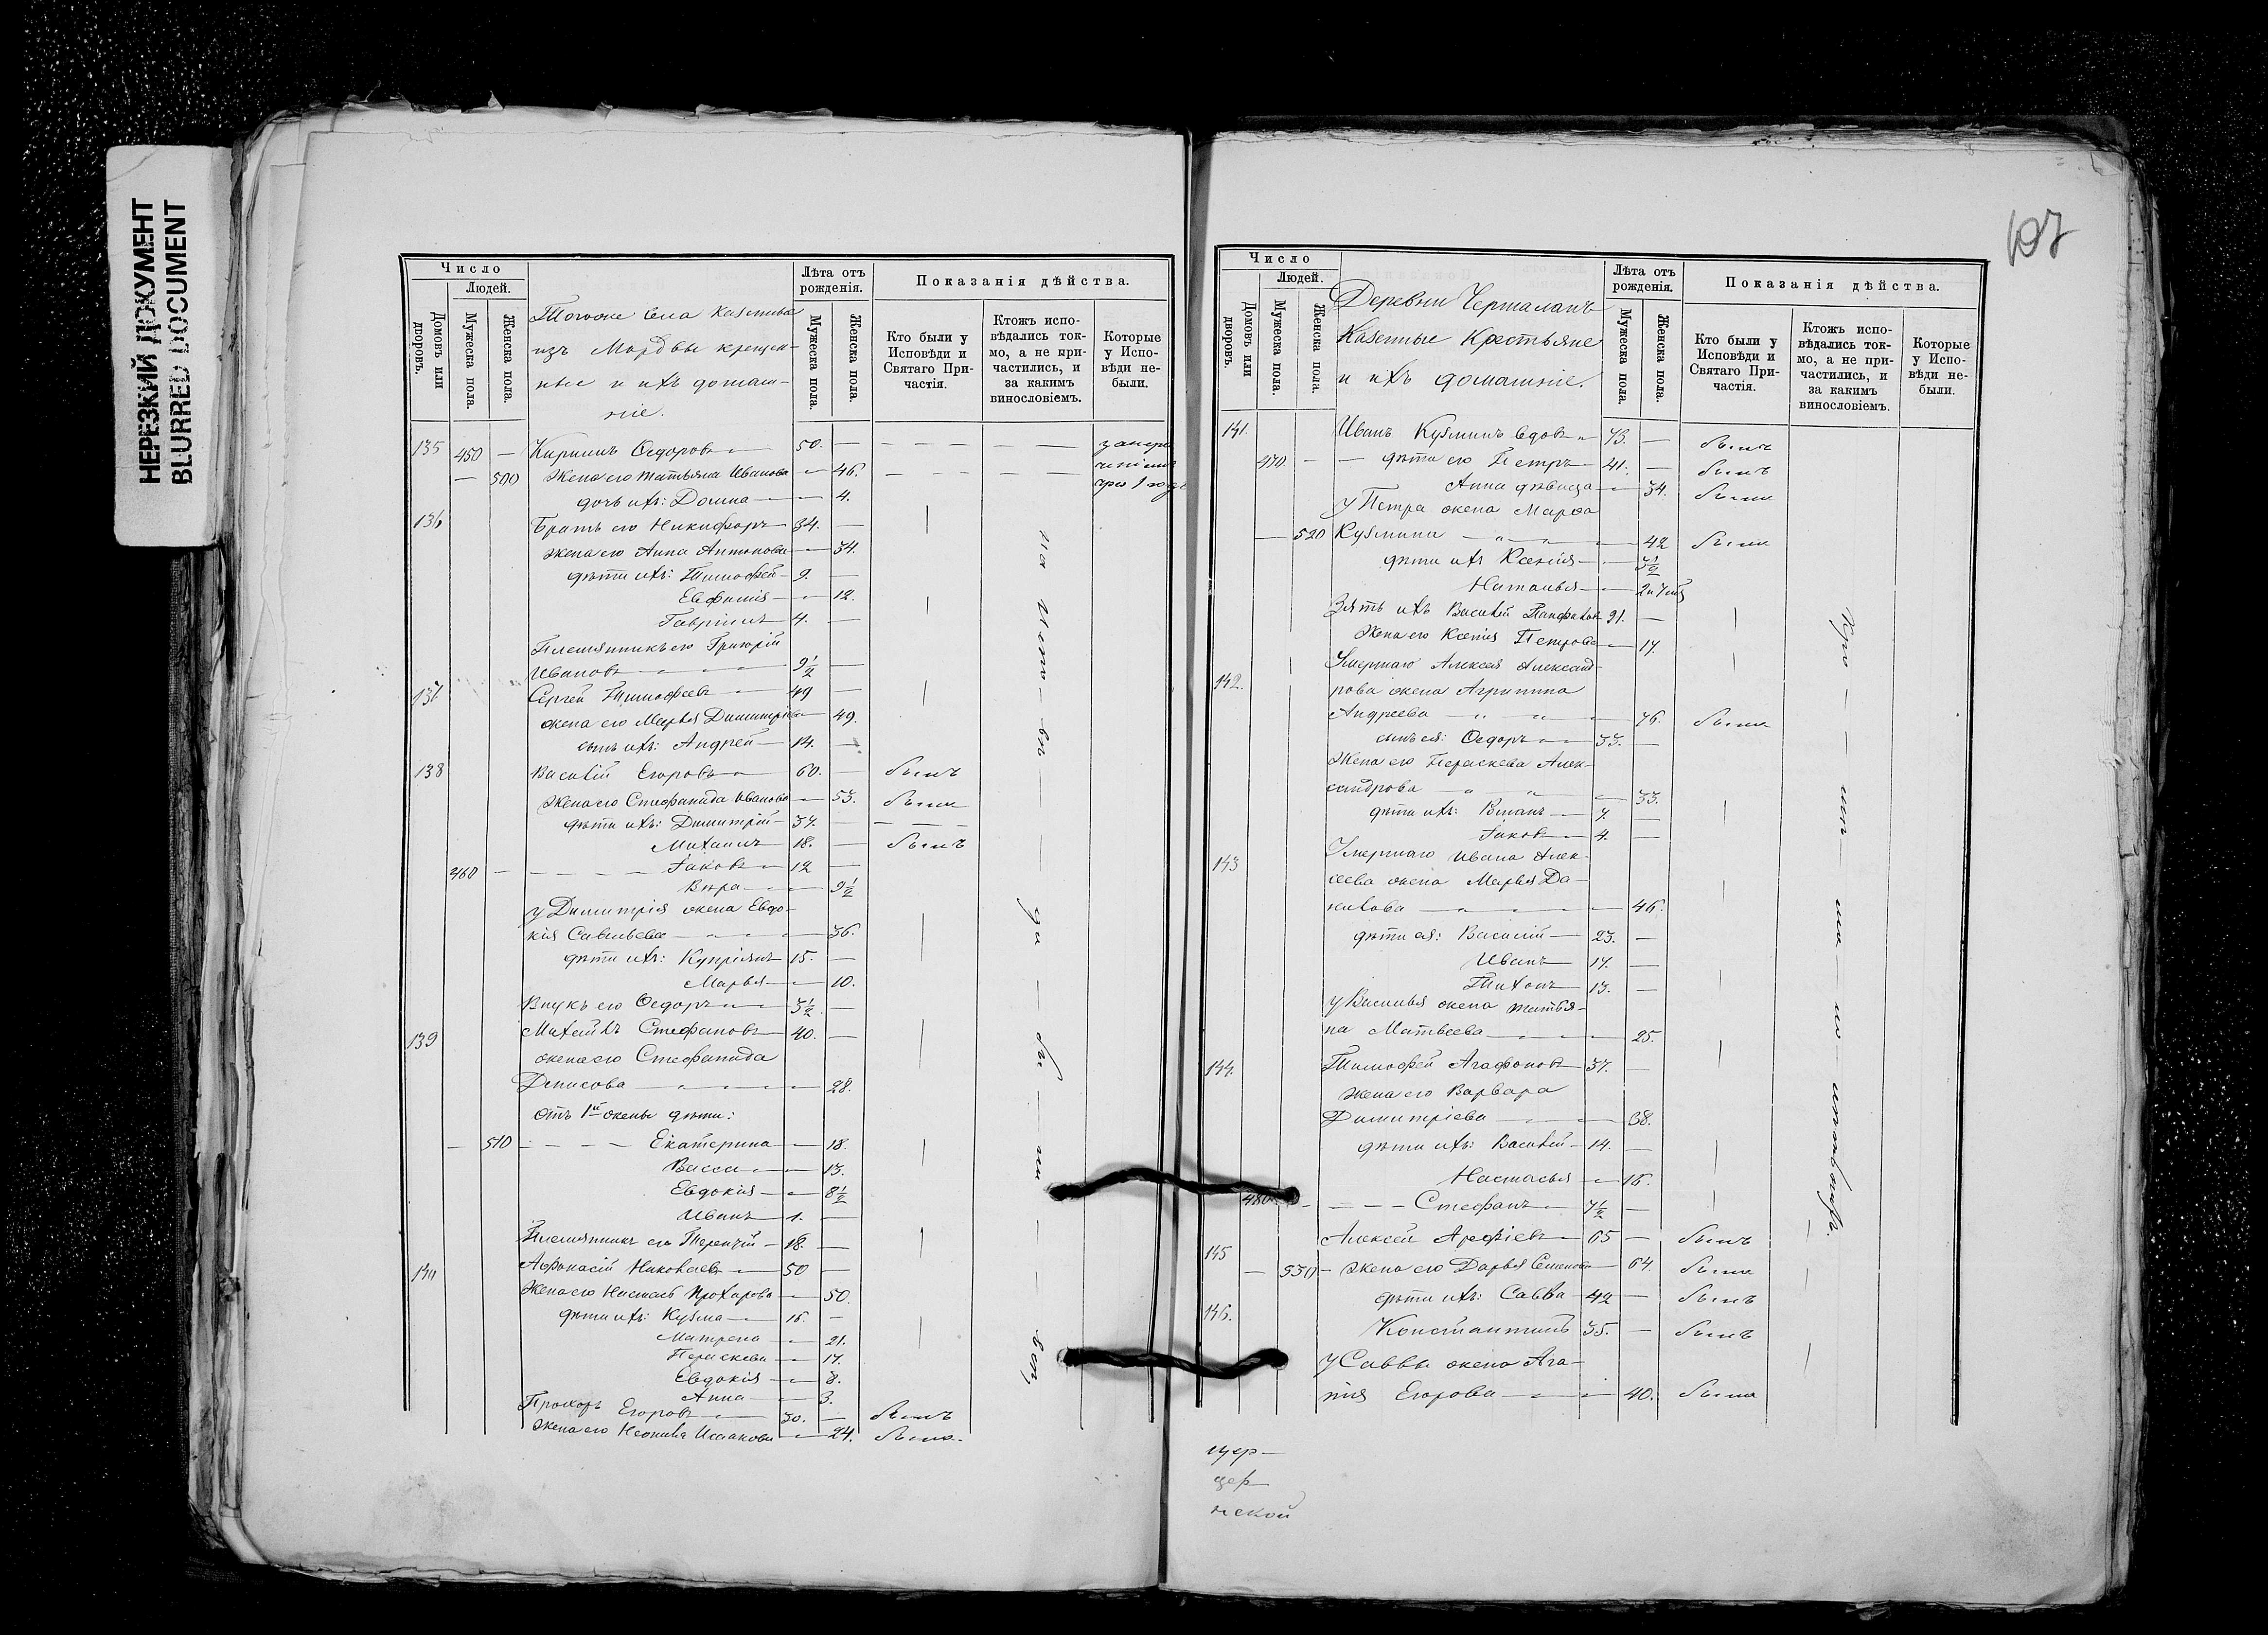 НЕРЕЗКИЙ ДОКУМЕНТ
BLURRED DOCUMENT
Число
Людей.
Домовъ или дворовъ.
Мужеска пола.
Женска пола.
Тогоже села
изъ Мордвы крещен-
ные и ихъ домаш-
ніе.
Лѣта отъ рожденія.
Мужеска пола.
Женска пола.
Показанія дѣйства.
Кто были у Исповѣди и Святаго Причастія.
Ктожъ исповѣдались токмо, а не причастились, и за какимъ винословіемъ.
Которые у Исповѣди небыли.
135 450 — Кирилъ Ѳедоровъ 50. —
— 500 Жена его Татьяна Иванова — 46.
дочь ихъ: Домна — 4.
136 Братъ его Никифоръ 34. —
жена его Анна Антонова — 34.
дѣти ихъ: Тимофей 9. —
Евфимія — 12.
Гавріилъ 4. —
Племянникъ его Григорій
Ивановъ 9½ —
137 Сергей Тимофеевъ 49 —
жена его Марья Димитріева — 49.
сынъ ихъ: Андрей 14. —
138 Василій Егоровъ 60. — былъ
Жена его Стефанида Иванова — 53. была
дѣти ихъ: Димитрій 37. —
Михаилъ 18. — былъ
460 — Іаковъ 12 —
Вѣра — 9½
у Димитрія жена Евдо-
кія Савельева — 36.
дѣти ихъ: Купріянъ 15. —
Марья — 10.
Внукъ его Ѳедоръ 3½ —
139 Стефановъ 40. —
жена его Стефанида
Денисова — 28.
Отъ 1й жены дѣти:
— 510 Екатерина — 18.
Васса — 13.
Евдокія — 8½
Иванъ 1. —
Племянникъ его Терентій 18. —
140 Афонасій Николаевъ 50 —
Жена его Настасья Прохорова — 50.
дѣти ихъ: Кузма 16. —
Матрена — 21.
Параскева — 17.
Евдокія — 8.
Анна — 3.
Прохоръ Егоровъ 30. — былъ
Жена его — 24. была
107
Число
Людей.
Домовъ или дворовъ.
Мужеска пола.
Женска пола.
Деревни
Казенные Крестьяне
и ихъ домашніе.
Лѣта отъ рожденія.
Мужеска пола.
Женска пола.
Показанія дѣйства.
Кто были у Исповѣди и Святаго Причастія.
Ктожъ исповѣдались токмо, а не причастились, и за какимъ винословіемъ.
Которые у Исповѣди небыли.
141. Иванъ Кузминъ вдовъ 73. — былъ
470. — дѣти его Петръ 41. — былъ
Анна дѣвица — 34. была
у Петра жена Марѳа
— 520 Кузмина — 42 была
дѣти ихъ Ксенія — 3½
Наталья —
Зять ихъ Василій 21. —
Жена его Ксенія Петрова — 17.
142. Умершаго Алексея Александ-
рова жена Агрипина
Андреева — 76. была
сынъ ея: Ѳедоръ 33. —
Жена его Параскева Алек-
сандрова — 33.
дѣти ихъ: 7. —
Іаковъ 4. —
143 Умершаго Ивана Алек-
сеева жена Марья Да-
нилова — 46.
дѣти ея: Василій 23. —
Иванъ 17. —
Тихонъ 13. —
у Василья жена Татья-
на Матвеева — 25.
144. Тимофей Агафоновъ 37. —
жена его Варвара
Димитріева — 38.
дѣти ихъ: Василій 14. —
Настасья — 16.
480. — Стефанъ 7½ —
145 Алексей Арефіевъ 65 — былъ
— 530 — жена его Дарья Семенова — 64. была
дѣти ихъ: Савва 42 — былъ
146. Константинъ 35. — былъ
у Саввы жена Ага-
пія Егорова — 40. была
цер-
нской